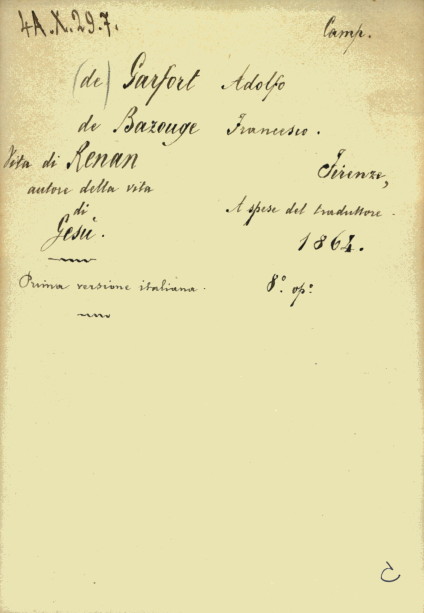 4A.X.29.7.
Camp.
(de) Garfort Adolfo
de Bazouge Francesco.
Vita di Renan
Firenze,
autore della vita
di
A spese del traduttore.
Gesù.
1864.
Prima versione italiana.
8° op°